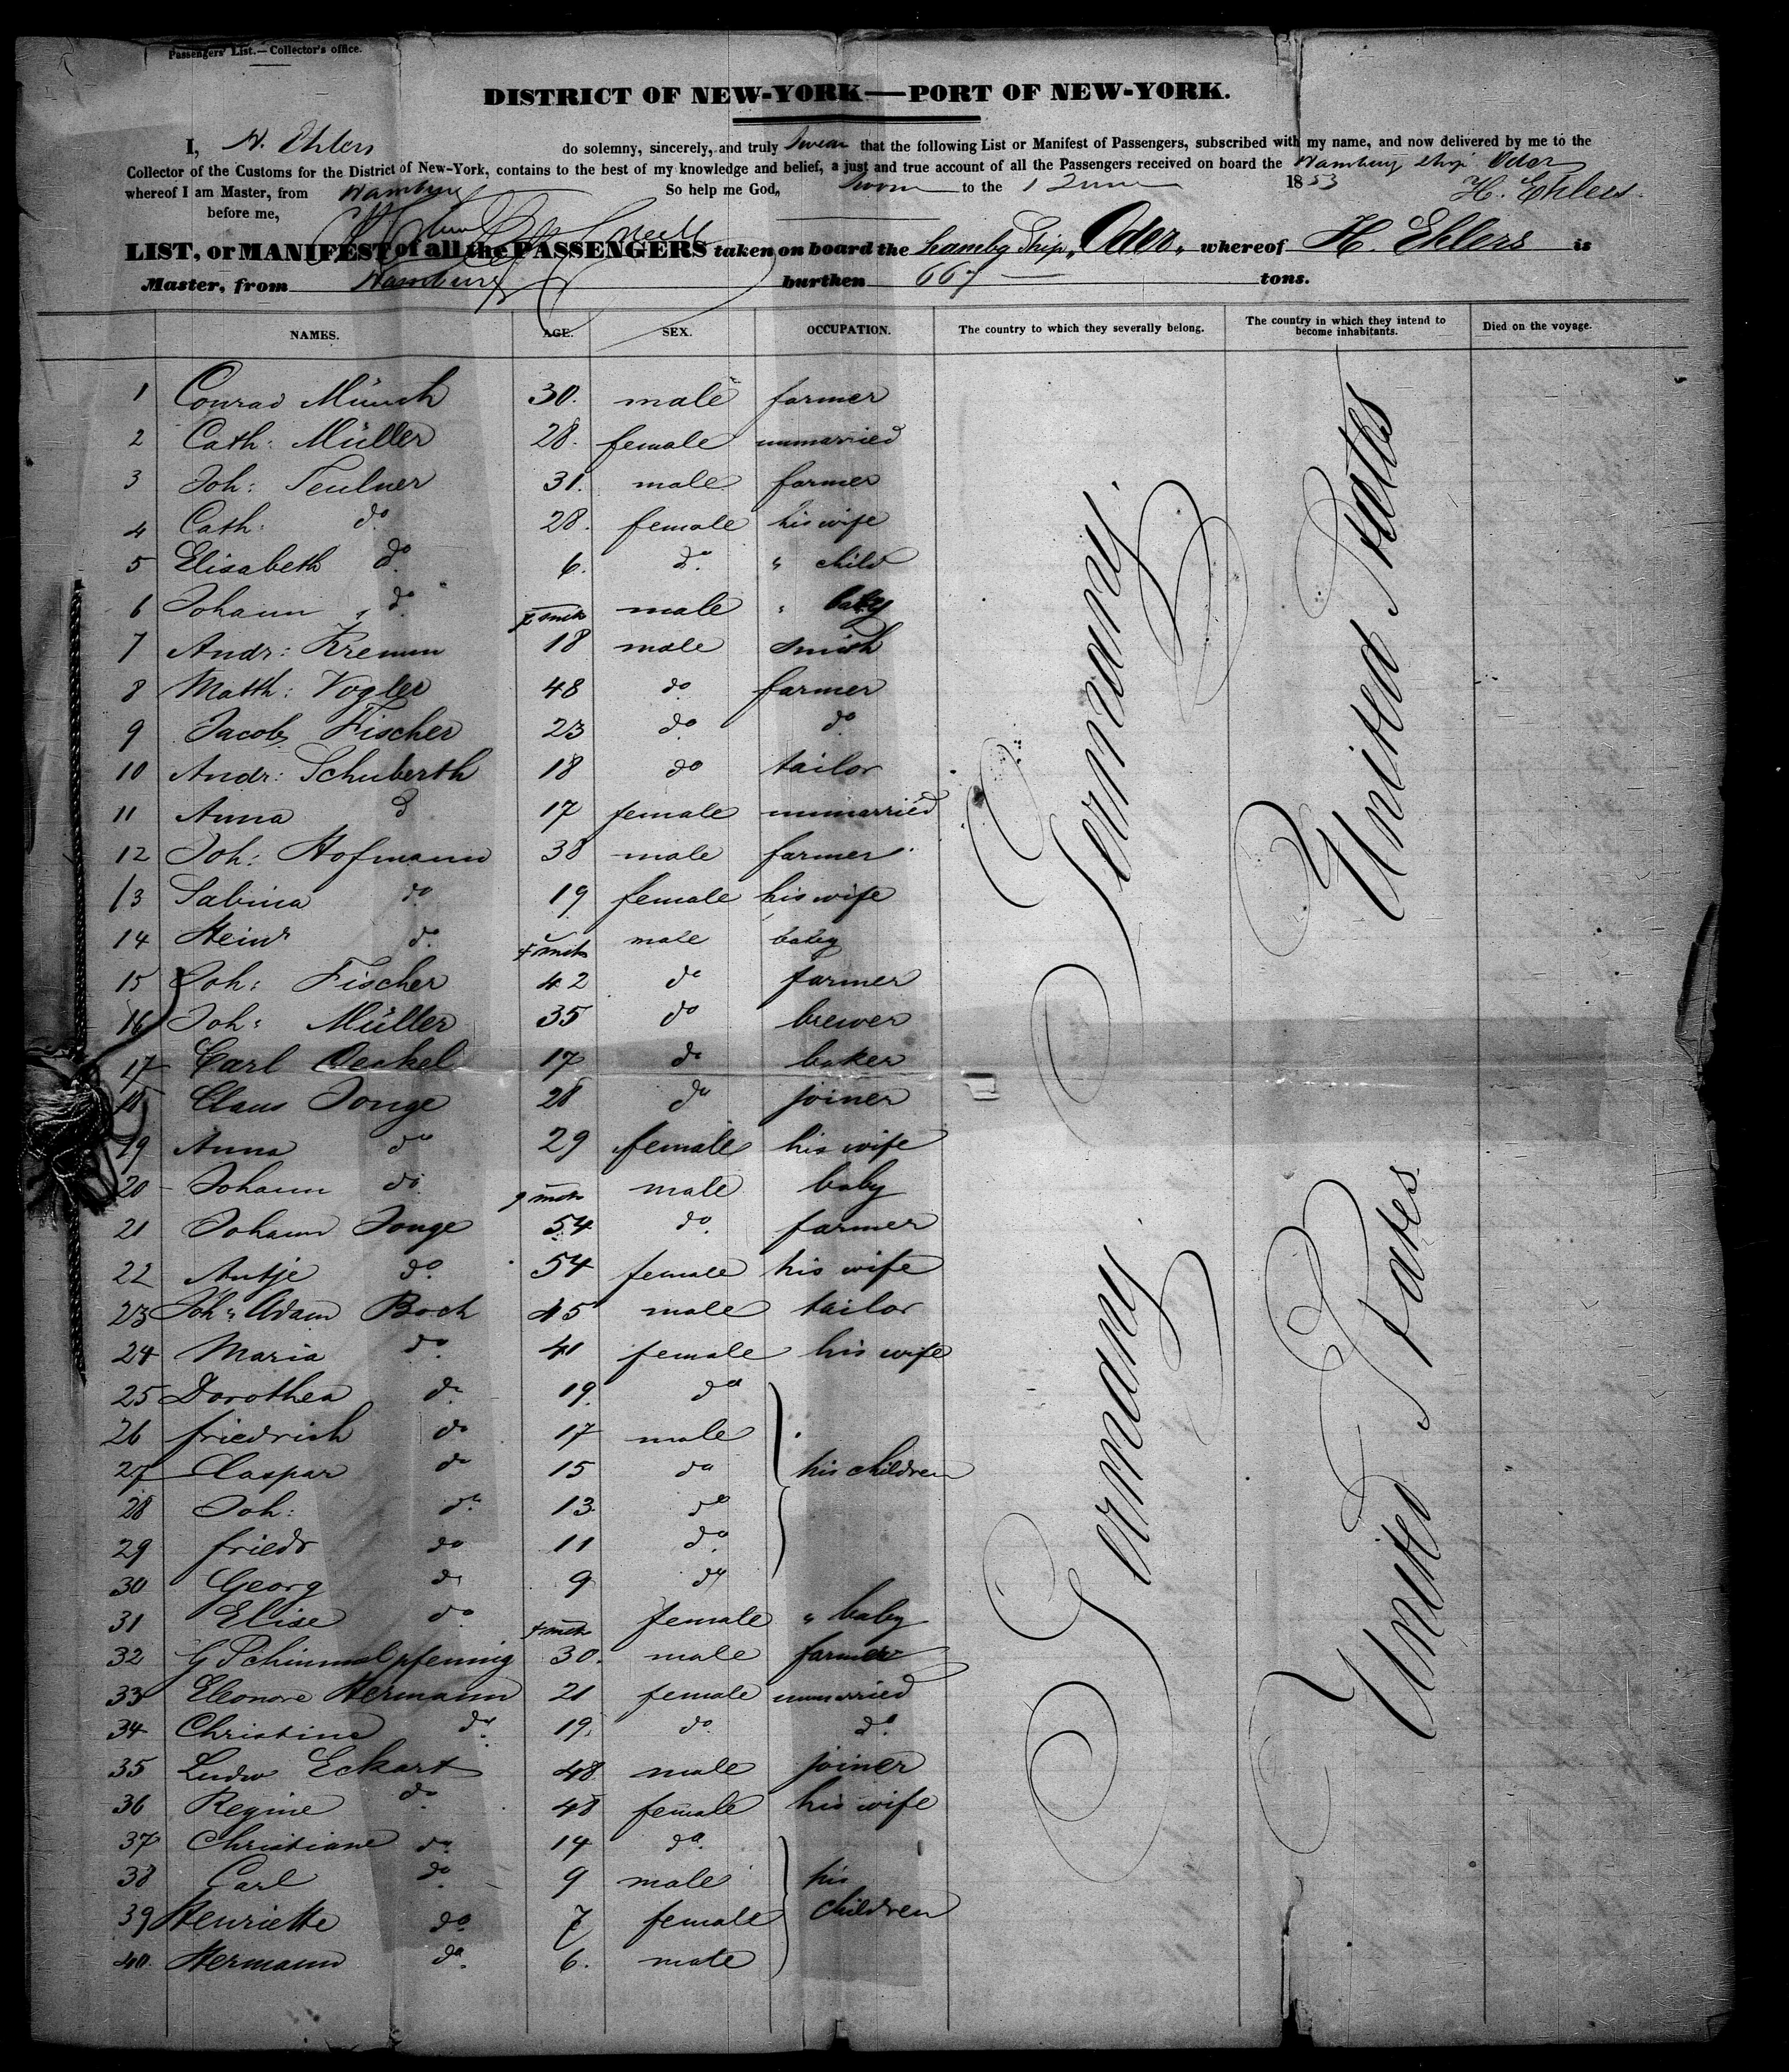 Passengers' List.—Collector's office.
DISTRICT OF NEW-YORK—PORT OF NEW-YORK.
I, H. Ehlers do solemny, sincerely, and truly swear that the following List or Manifest of Passengers, subscribed with my name, and now delivered by me to the
Collector of the Customs for the District of New-York, contains to the best of my knowledge and belief, a just and true account of all the Passengers received on board the Hamburg Ship Oder
whereof I am Master, from Hamburg So help me God, Sworn to the 1 June 1853 H. Ehlers
before me,
LIST, or MANIFEST of all the PASSENGERS taken on board the hambg Ship "Oder" whereof H. Ehlers is
Master, from Hamburg burthen 667 tons.
NAMES. AGE. SEX. OCCUPATION. The country to which they severally belong. The country in which they intend to become inhabitants. Died on the voyage.
1 Conrad Münch 30. male farmer
2 Cath: Müller 28. female unmarried
3 Joh: Teulner 31. male farmer
4 Cath: do 28. female his wife
5 Elisabeth do 6. do. " child
6 Johann do mth male " baby
7 Andr: Kremm 18 male smith
8 Matth: Vogler 48 do farmer
9 Jacob Fischer 23 do. do
10 Andr: Schuberth 18 do tailor
11 Anna d 17 female unmarried
12 Joh: Hofmann 38 male farmer
13 Sabina do 19 female his wife
14 Heinr do. mth male baby
15 Joh: Fischer 42 do farmer
16 Joh: Müller 35 do brewer
17 Carl Oeckel 17 do baker
18 Claus Jonge 28 do joiner
19 Anna do 29 female his wife
20 Johann do. 9 mth male baby
21 Johann Jonge 54 do. farmer
22 Antje do. 54 female his wife
23 Joh: Adam Bock 45 male tailor
24 Maria do. 41 female his wife
25 Dorothea do 19. do
26 friedrich do 17 male
27 Caspar do 15 do his children
28 Joh: do. 13 do
29 friedr do 11 do.
30 Georg do 9 do
31 Elise do. mth female " baby
32 G Schimmelpfennig 30. male farmer
33 Eleonore Hermann 21 female unmarried
34 Christine do. 19. do. do.
35 Ludw Eckart 48 male joiner
36 Regine do. 48 female his wife
37 Christiane do. 14 do.
38 Carl do. 9 male his
39 Henriette do. 7 female children
40. Hermann do. 6. male
Germany.
United States
Germany
United States